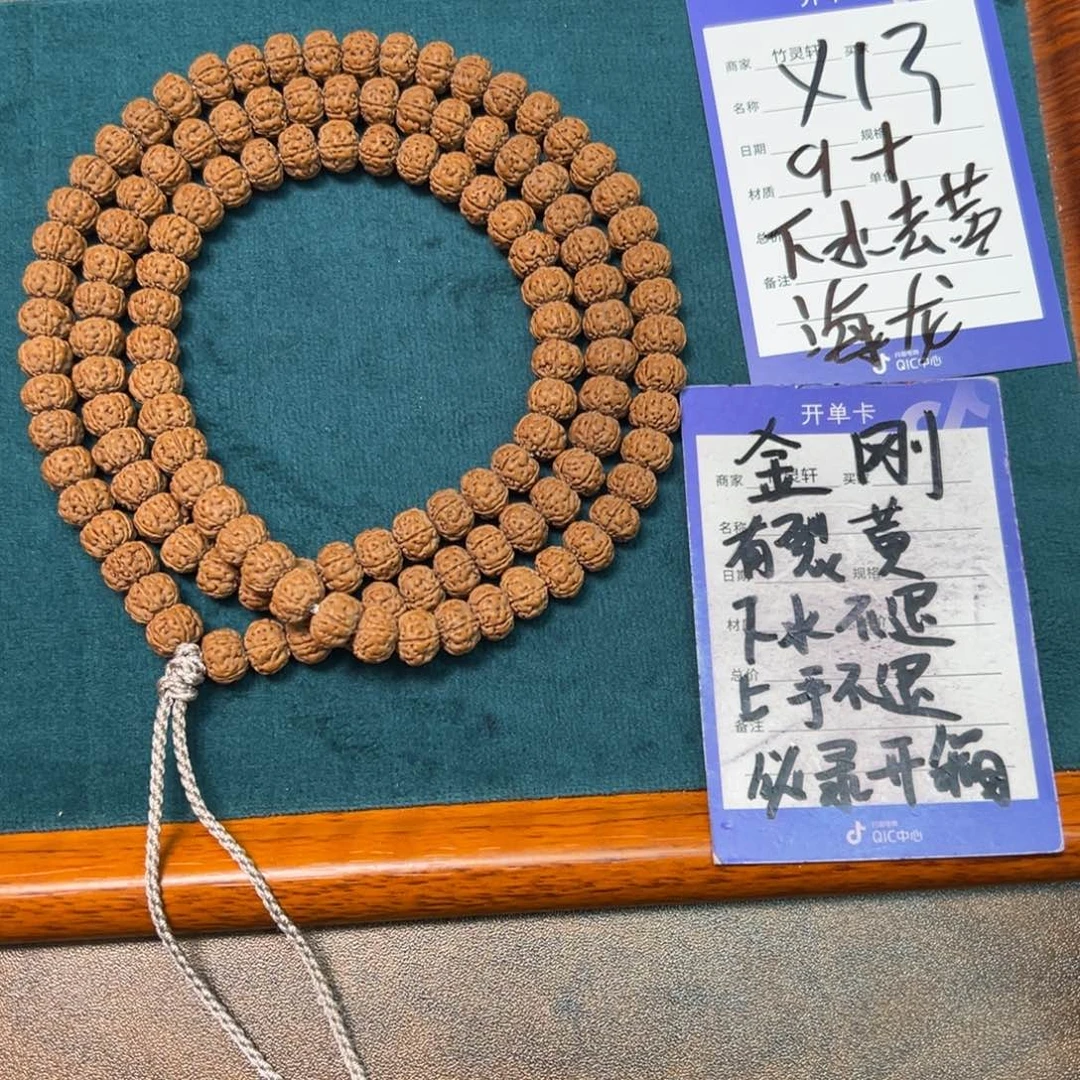 开单卡
商家 竹灵轩 买家
Y13
名称
规格
日期
9+
材质 单价
下水去黄
总价
备注
海龙
抖音电商
QIC中心
开单卡
金刚
商家 竹灵轩 买
名称
有裂黄
日期 规格
下水不退
材质
总价
上手不退
备注
必录开箱
抖音电商
QIC中心